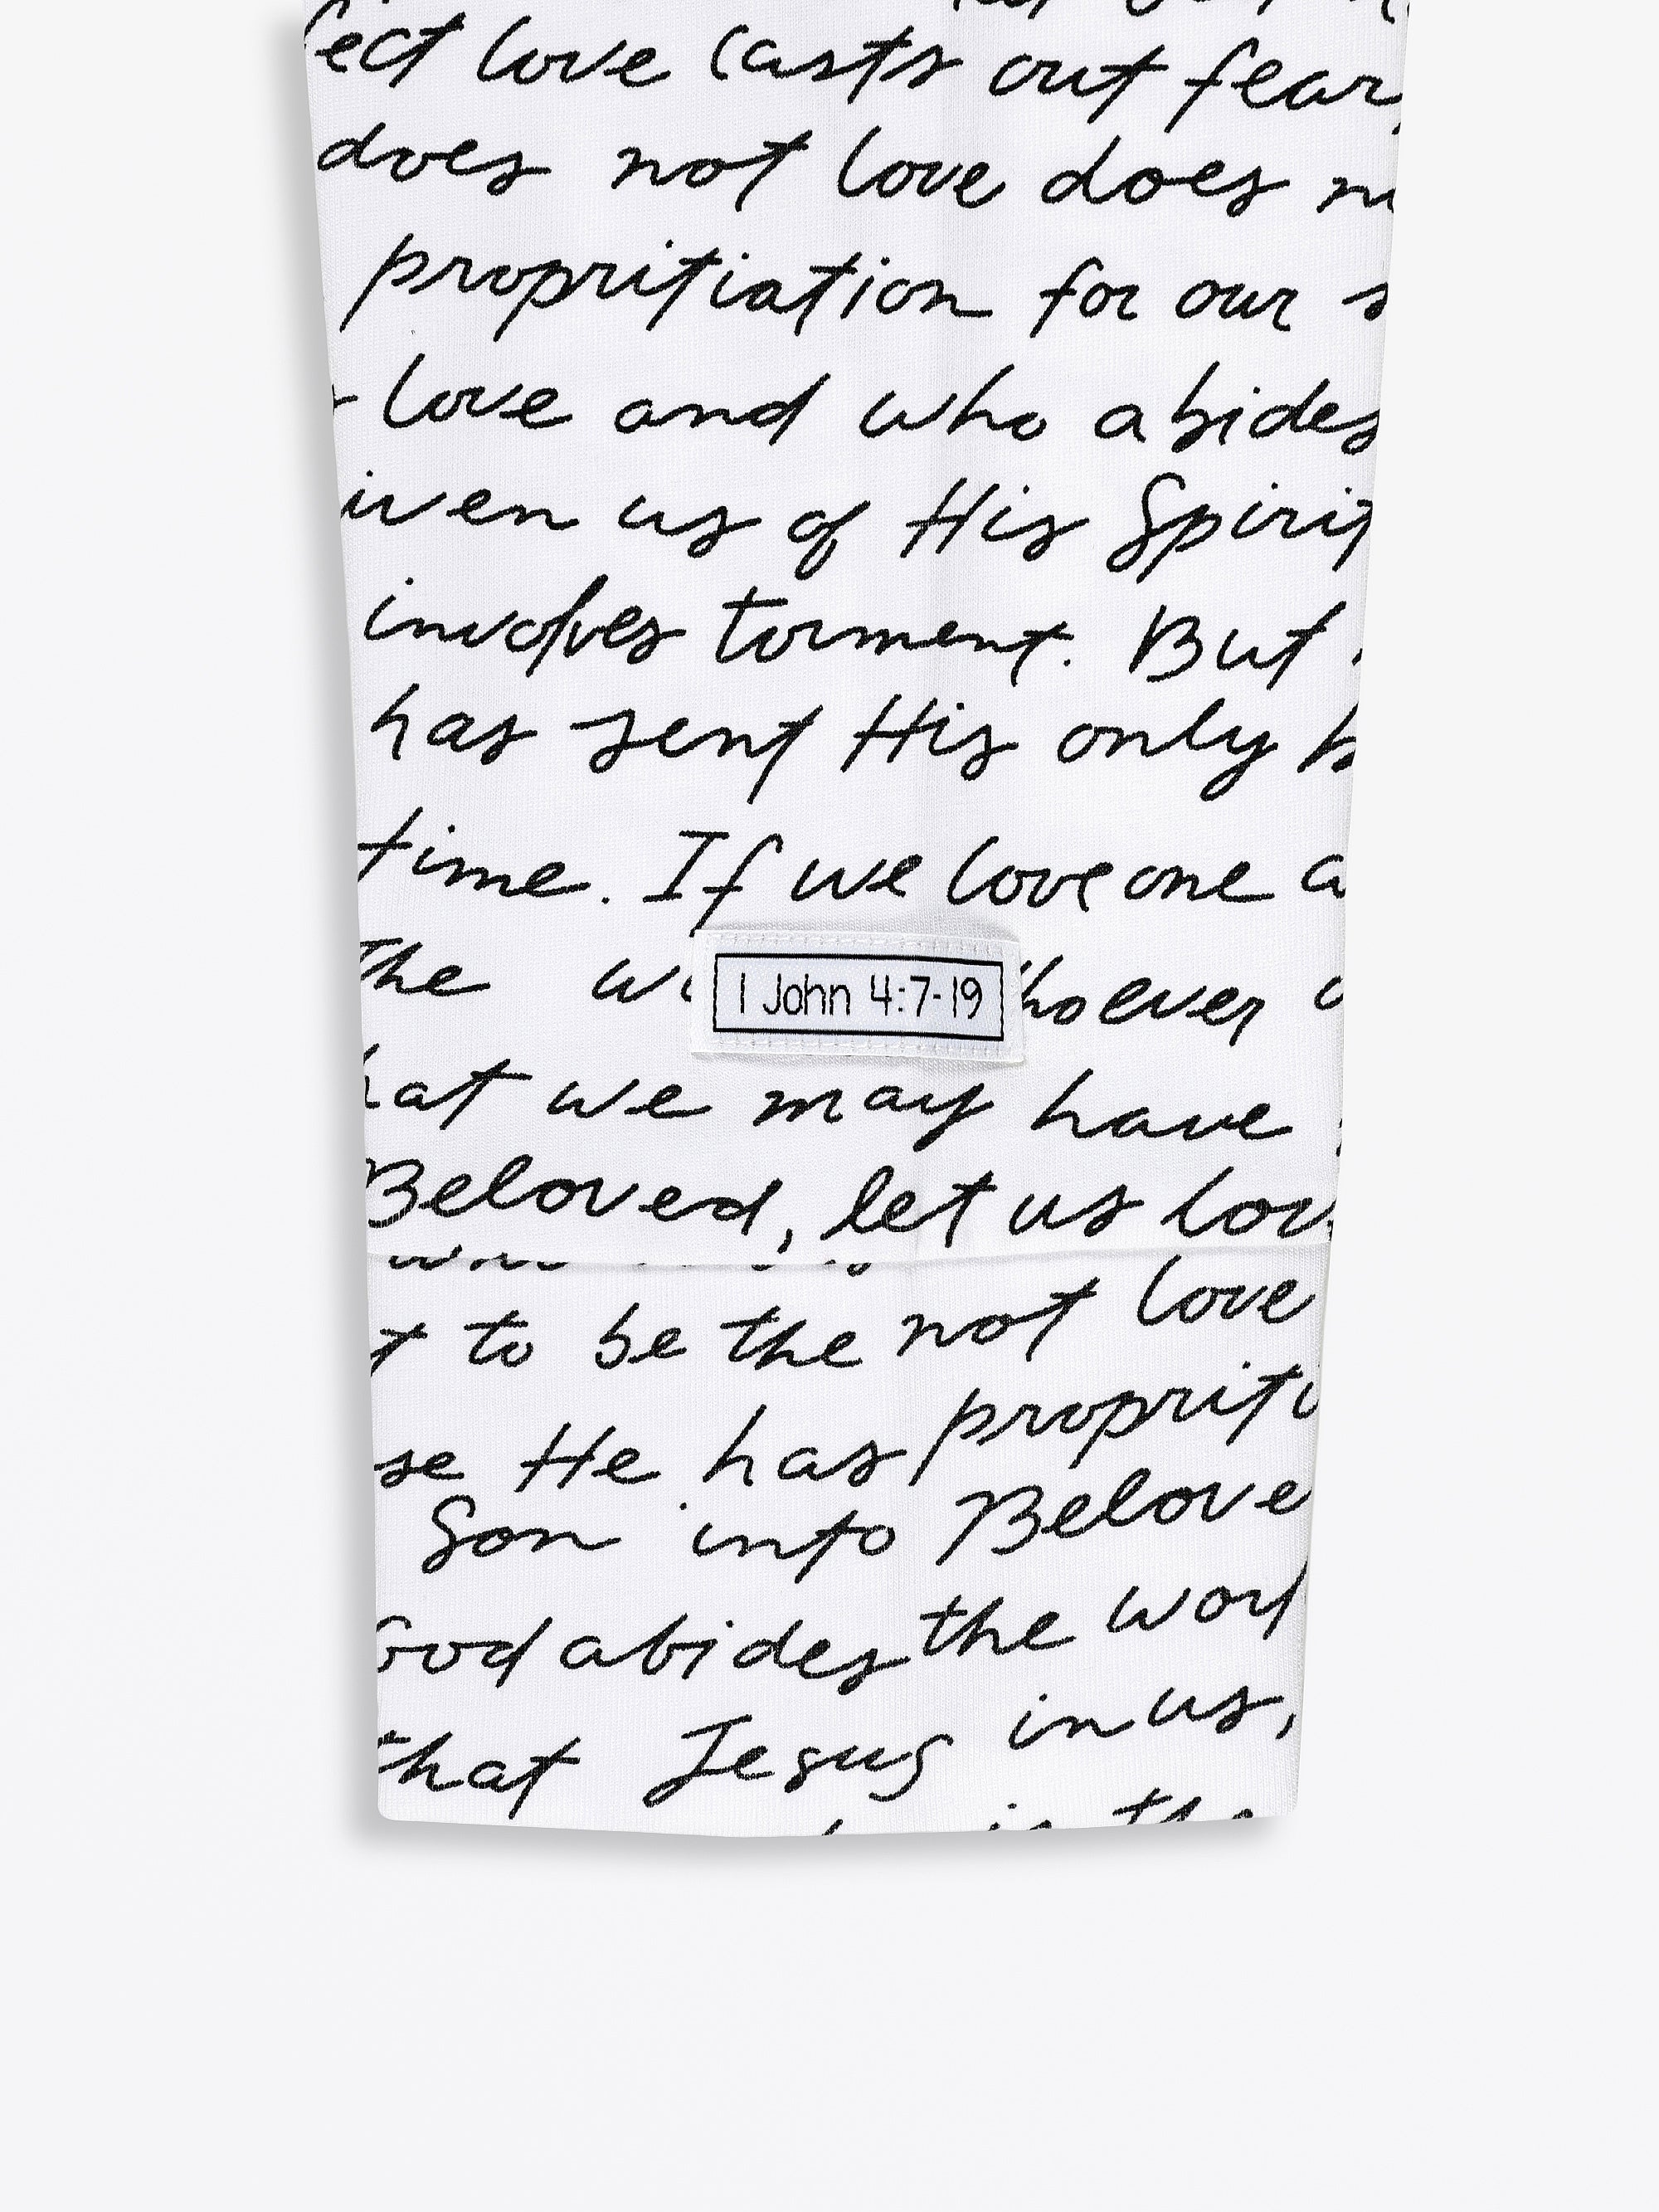 fect love casts out fear,
does not love does
propritiation for our
love and who abides
iven us of His Spirit
involves torment. But
has sent His only
time. If we love one a
The
1 John 4:7-19
hoever
hat we may have
Beloved, let us lov
t to be the not love
se He has propriti
Son into Belove
God abides the worl
that Jesus in us,
is the